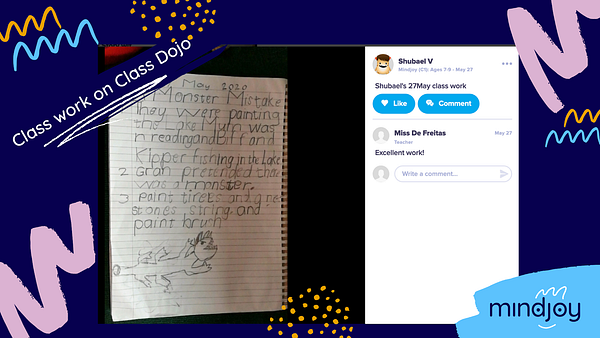 Class work on Class Dojo
May 2020
Monster Mistake
They were painting
Mum was
in reading and
Kipper fishing in the Lake
2 Gran pretended that
was a monster.
3 paint tirets
stones, string and
paint brush
Shubael V
Mindjoy (C1): Ages 7-9 - May 27
Shubael's 27May class work
Like
Comment
Miss De Freitas
May 27
Teacher
Excellent work!
Write a comment...
mindjoy